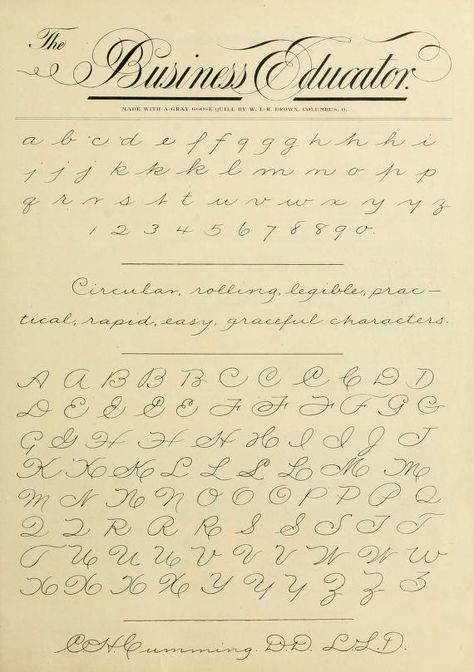 The Business Educator.
MADE WITH A GRAY GOOSE QUILL BY W. L-R. BROWN, COLUMBUS, O.
a b c d e f f g g g h h h i
j j j k k k l m n o p p
q r r s s t t u v v w x y y z
1 2 3 4 5 6 7 8 8 9 0.
Circular, rolling, legible, prac-
tical, rapid, easy, graceful characters.
A A B B B C C C C D D
D E E E E F F F F G G
G G H H H H I I J J
K K K L L L L M M
M N N N O O O P P P Q
Q Q R R R S S S T T
T U U U V V V W W W
X X X X Y Y Y Z Z Z
C.H. Cumming. D.D. L.L.D.